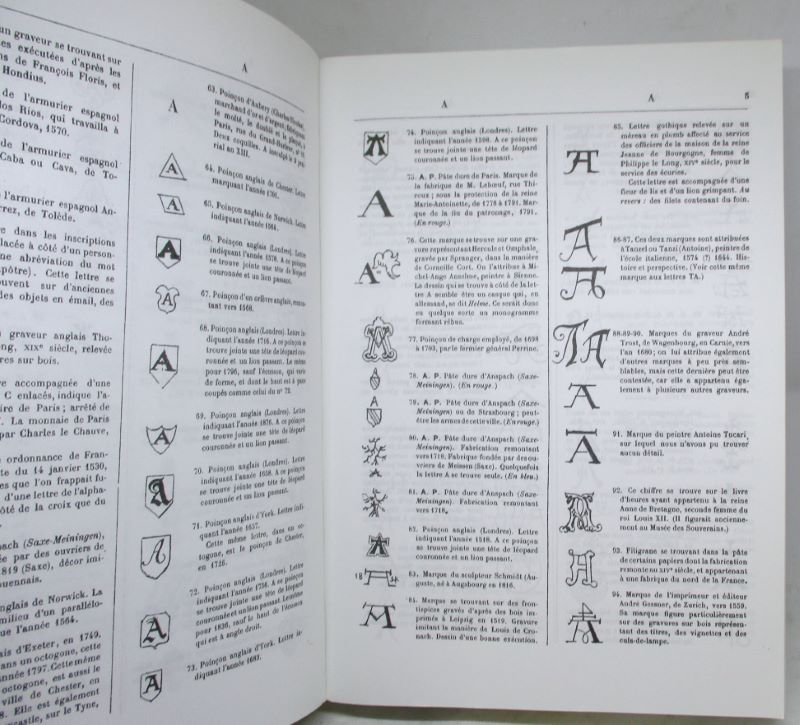 un graveur se trouvant sur
es exécutées d'après les
ns de François Floris, et
Hondius.
de l'armurier espagnol
los Rios, qui travailla à
Cordova, 1570.
de l'armurier espagnol
Caba ou Cava, de To-
l'armurier espagnol An-
rez, de Tolède.
re dans les inscriptions
lacée à côté d'un person-
ne abréviation du mot
pôtre). Cette lettre se
ouvent sur d'anciennes
des objets en émail, des
graveur anglais Tho-
ng, XIXe siècle, relevée
res sur bois.
re accompagnée d'une
C enlacés, indique l'a-
ire de Paris; arrêté de
La monnaie de Paris
par Charles le Chauve,
ordonnance de Fran-
te du 14 janvier 1530,
es que l'on frappait fu-
d'une lettre de l'alpha-
ôté de la croix que du
pach (Saxe-Meiningen),
ée par des ouvriers de
1819 (Saxe), décor imi-
ouennais.
nglais de Norwick. La
milieu d'un parallélo-
que l'année 1564.
ais d'Exeter, en 1749.
ans un octogone, cette
onnée 1797. Cette même
octogone, est aussi le
ville de Chester, en
8. Elle est également
castle, sur le Tyne,
A
63. Poinçon d'Aubery (Charles
marchand d'or et d'argent, fabriquant
Paris, rue du Grand-Hurleur, nº
Deux coquilles. A insculpé le
rial an XIII.
64. Poinçon anglais de Chester. Lettre
marquant l'année 1701.
65. Poinçon anglais de Norwick. Lettre
indiquant l'année 1564.
66. Poinçon anglais (Londres). Lettre
indiquant l'année 1578. A ce poinçon
se trouve jointe une tête de léopard
couronnée et un lion passant.
67. Poinçon d'un orfèvre anglais, remon-
tant vers 1568.
68. Poinçon anglais (Londres). Lettre in-
diquant l'année 1716. A ce poinçon se
trouve jointe une tête de léopard cou-
ronnée et un lion passant. Le même
pour 1796, sauf l'écusson, qui varie
de forme, et dont le haut est à pans
coupés comme celui du nº 72.
69. Poinçon anglais (Londres). Lettre
indiquant l'année 1876. A ce poinçon
se trouve jointe une tête de léopard
couronnée et un lion passant.
70. Poinçon anglais (Londres). Lettre
indiquant l'année 1658. A ce poinçon
se trouve jointe une tête de léopard
couronnée et un lion passant.
71. Poinçon anglais d'York. Lettre indi-
quant l'année 1657.
Cette même lettre, dans un oc-
togone, est le poinçon de Chester,
en 1726.
72. Poinçon anglais (Londres). Lettre
indiquant l'année 1756. A ce poinçon
se trouve jointe une tête de léopard
couronnée et un lion passant. Lettre même
pour 1836, sauf le haut de l'écusson
qui est à angle droit.
73. Poinçon anglais d'York. Lettre in-
diquant l'année 1682.
A
A
5
74. Poinçon anglais (Londres). Lettre
indiquant l'année 1598. A ce poinçon
se trouve jointe une tête de léopard
couronnée et un lion passant.
75. A. P. Pâte dure de Paris. Marque de
la fabrique de M. Lebœuf, rue Thi-
roux; sous la protection de la reine
Marie-Antoinette, de 1778 à 1793. Mar-
que de la fin du patronage, 1791.
(En rouge.)
76. Cette marque se trouve sur une gra-
vure représentant Hercule et Omphale,
gravée par Spranger, dans la manière
de Corneille Cort. On l'attribue à Mi-
chel Ange Anselme, peintre à Sienne.
La dessin qui se trouve à côté de la let-
tre A semble être un casque qui, en
allemand, se dit Helme. Ce serait donc
en quelque sorte un monogramme
formant rébus.
77. Poinçon de charge employé, de 1698
à 1703, par le fermier général Perrine.
78. A. P. Pâte dure d'Anspach (Saxe-
Meiningen). (En rouge.)
79. A. P. Pâte dure d'Anspach (Saxe-
Meiningen) ou de Strasbourg; peut-
être les armes de cette ville. (En rouge.)
80. A. P. Pâte dure d'Anspach (Saxe-
Meiningen). Fabrication remontant
vers 1718. Fabrique fondée par des ou-
vriers de Meissen (Saxe). Quelquefois
la lettre A se trouve seule. (En bleu.)
81. A. P. Pâte dure d'Anspach (Saxe-
Meiningen). Fabrication remontant
vers 1718.
82. Poinçon anglais (Londres). Lettre
indiquant l'année 1518. A ce poinçon
se trouve jointe une tête de léopard
couronnée et un lion passant.
83. Marque du sculpteur Schmidt (Au-
guste, né à Augsbourg en 1816.
84. Marque se trouvant sur des fron-
tispices gravés d'après des bois im-
primés à Leipzig en 1519. Gravure
imitant la manière de Louis de Cro-
nach. Destin d'une bonne exécution.
85. Lettre gothique relevée sur un
méreau en plomb affecté au service
des officiers de la maison de la reine
Jeanne de Bourgogne, femme de
Philippe le Long, XIVe siècle, pour le
service des écuries.
Cette lettre est accompagnée d'une
fleur de lis et d'un lion grimpant. Au
revers: des filets contenant du foin.
86-87. Ces deux marques sont attribuées
à Tanzel ou Tanzi (Antoine), peintre de
l'école italienne, 1574 (?) 1644. His-
toire et perspective. (Voir cette même
marque aux lettres TA.)
88-89-90. Marques du graveur André
Trost, de Wagenbourg, en Carnie, vers
l'an 1680; on lui attribue également
d'autres marques à peu près sem-
blables, mais cette dernière peut être
contestée, car elle a appartenu éga-
lement à plusieurs autres graveurs.
91. Marque du peintre Antoine Tucari,
sur lequel nous n'avons pu trouver
aucun détail.
92. Ce chiffre se trouve sur le livre
d'heures ayant appartenu à la reine
Anne de Bretagne, seconde femme du
roi Louis XII. (Il figurait ancienne-
ment au Musée des Souverains.)
93. Filigrane se trouvant dans la pâte
de certains papiers dont la fabrication
remonte au XIVe siècle, et appartenant
à une fabrique du nord de la France.
94. Marque de l'imprimeur et éditeur
André Gessner, de Zurich, vers 1559.
Sa marque figure particulièrement
sur des gravures sur bois représen-
tant des titres, des vignettes et des
culs-de-lampe.